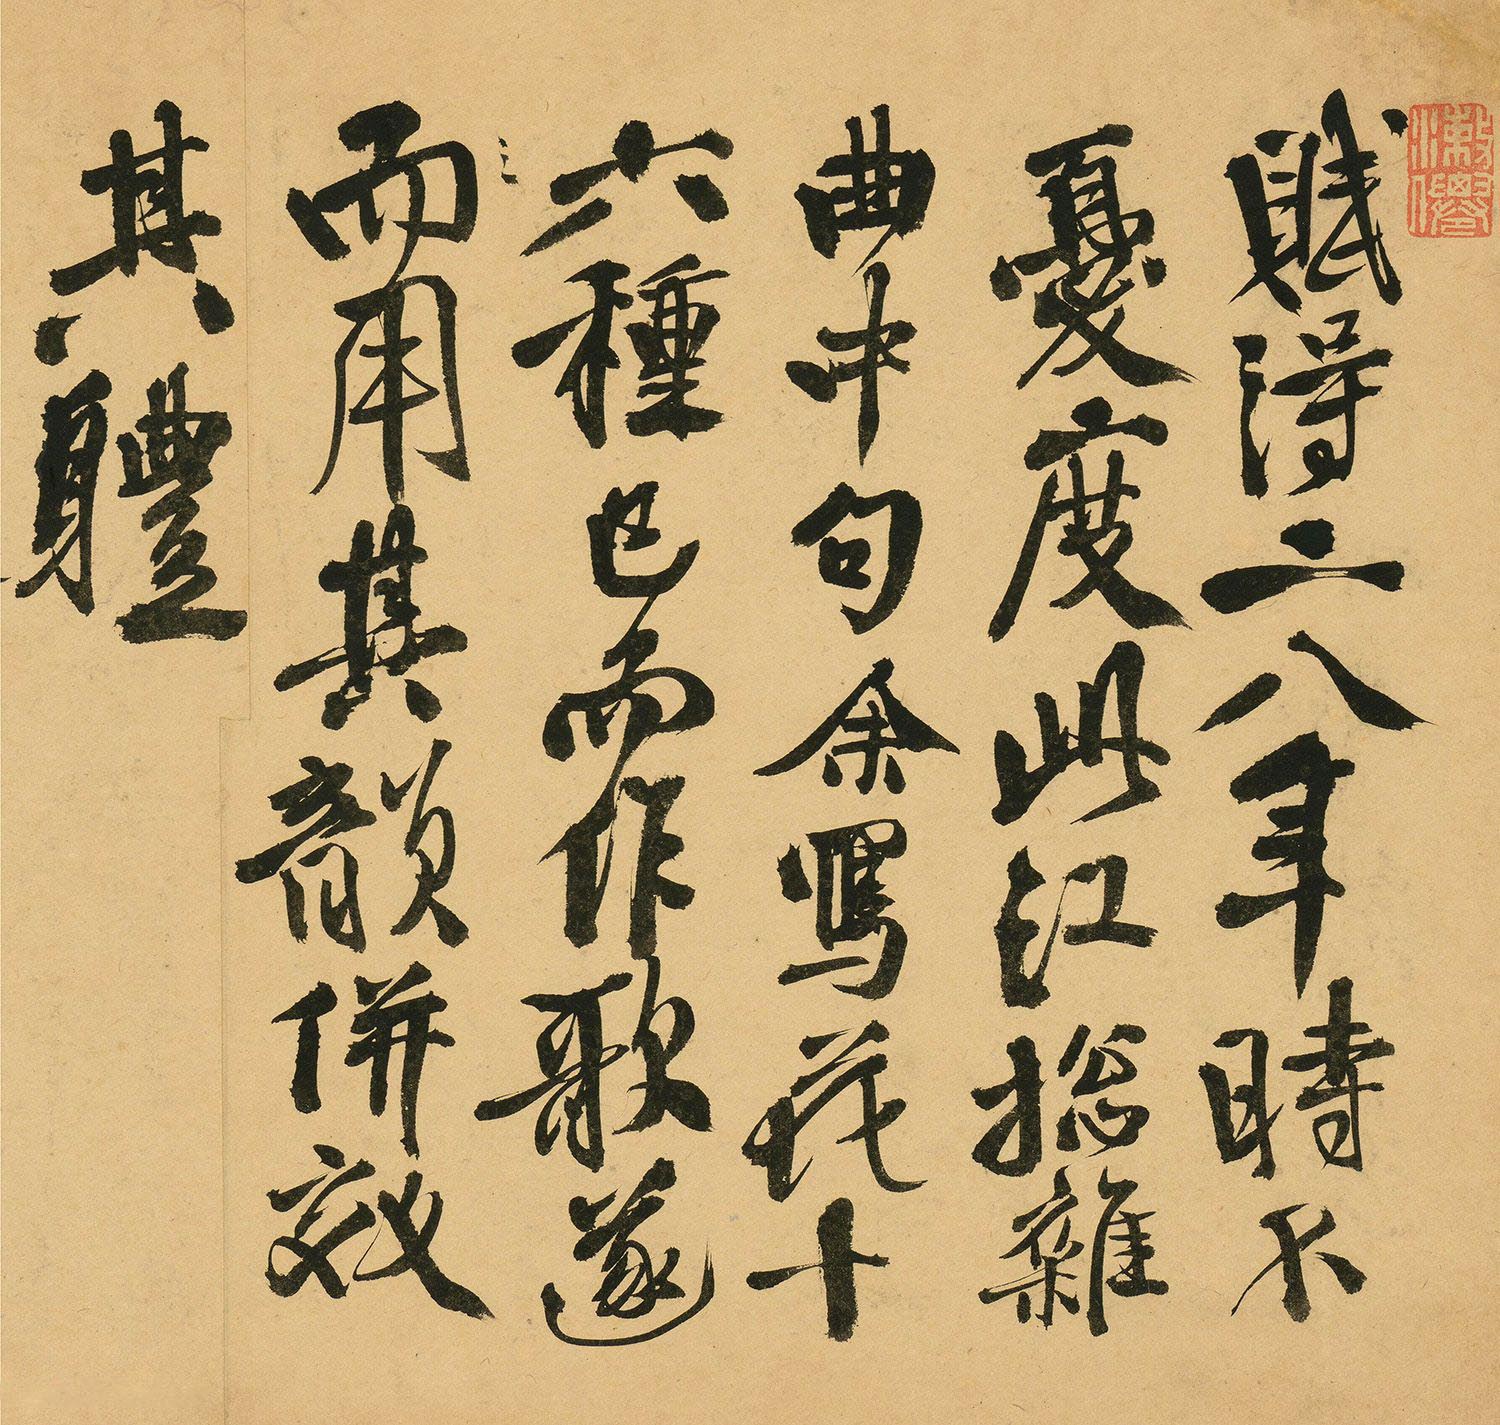 賦得二八年時不
憂度此江捴雜
曲中句余寫花十
六種已而作歌遂
而用其韻併效
其軆
漱僊